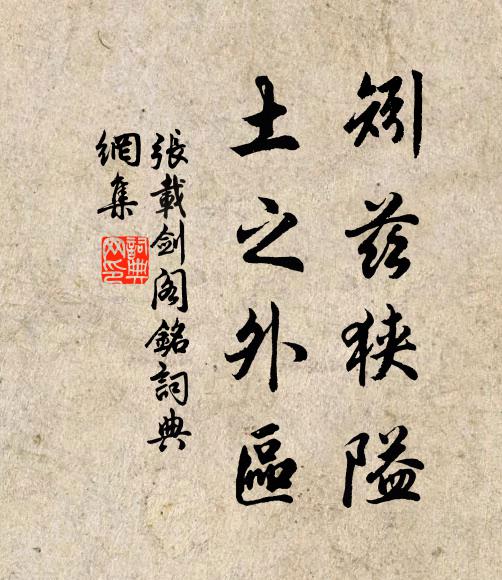 矧茲狹隘
土之外區
張載劍閣銘詞典
網集
詞典
网印